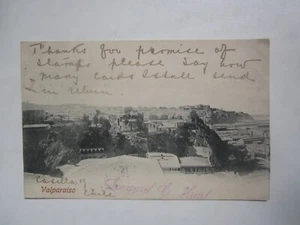 Thanks for promise of
stamps please say how
many cards I shall send
in return
Valparaiso
Casilla
Chile